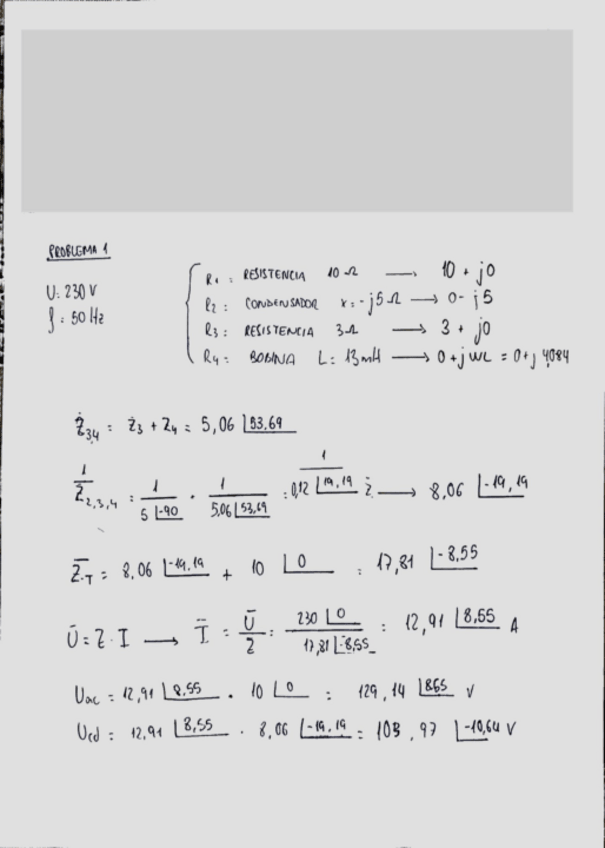 PROBLEMA 1
U: 230 V
f: 50 Hz
R1: RESISTENCIA 10 Ω → 10 + j0
R2: CONDENSADOR x = -j5 Ω → 0 - j5
R3: RESISTENCIA 3Ω → 3 + j0
R4: BOBINA L: 13 mH → 0 + j WL = 0 + j 4,084
Z34 = Z3 + Z4 = 5,06 ∠53,69
1/Z2,3,4 = 1/(5 ∠-90) · 1/(5,06 ∠53,69) = 1/(0,12 ∠19,19) Z → 8,06 ∠-19,19
ZT = 8,06 ∠-19,19 + 10 ∠0 = 17,81 ∠-8,55
U = Z · I → I = U/Z = 230 ∠0 / 17,81 ∠-8,55 = 12,91 ∠8,55 A
Uac = 12,91 ∠8,55 · 10 ∠0 = 129,14 ∠8,65 V
Ucd = 12,91 ∠8,55 · 8,06 ∠-19,19 = 103,97 ∠-10,64 V